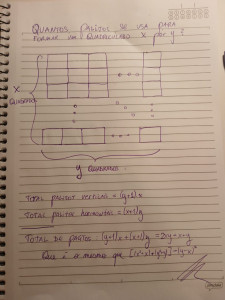 QUANTOS PALITOS SE USA PARA
FORMAR UM QUADRICULADO X POR Y ?
X
QUADRADOS
y QUADRADOS
TOTAL PALITOS VERTICAIS = (y+1)x
TOTAL PALITOS HORIZONTAIS = (x+1)y
TOTAL DE PALITOS (y+1)x + (x+1)y = 2xy + x + y
QUE É O MESMO QUE